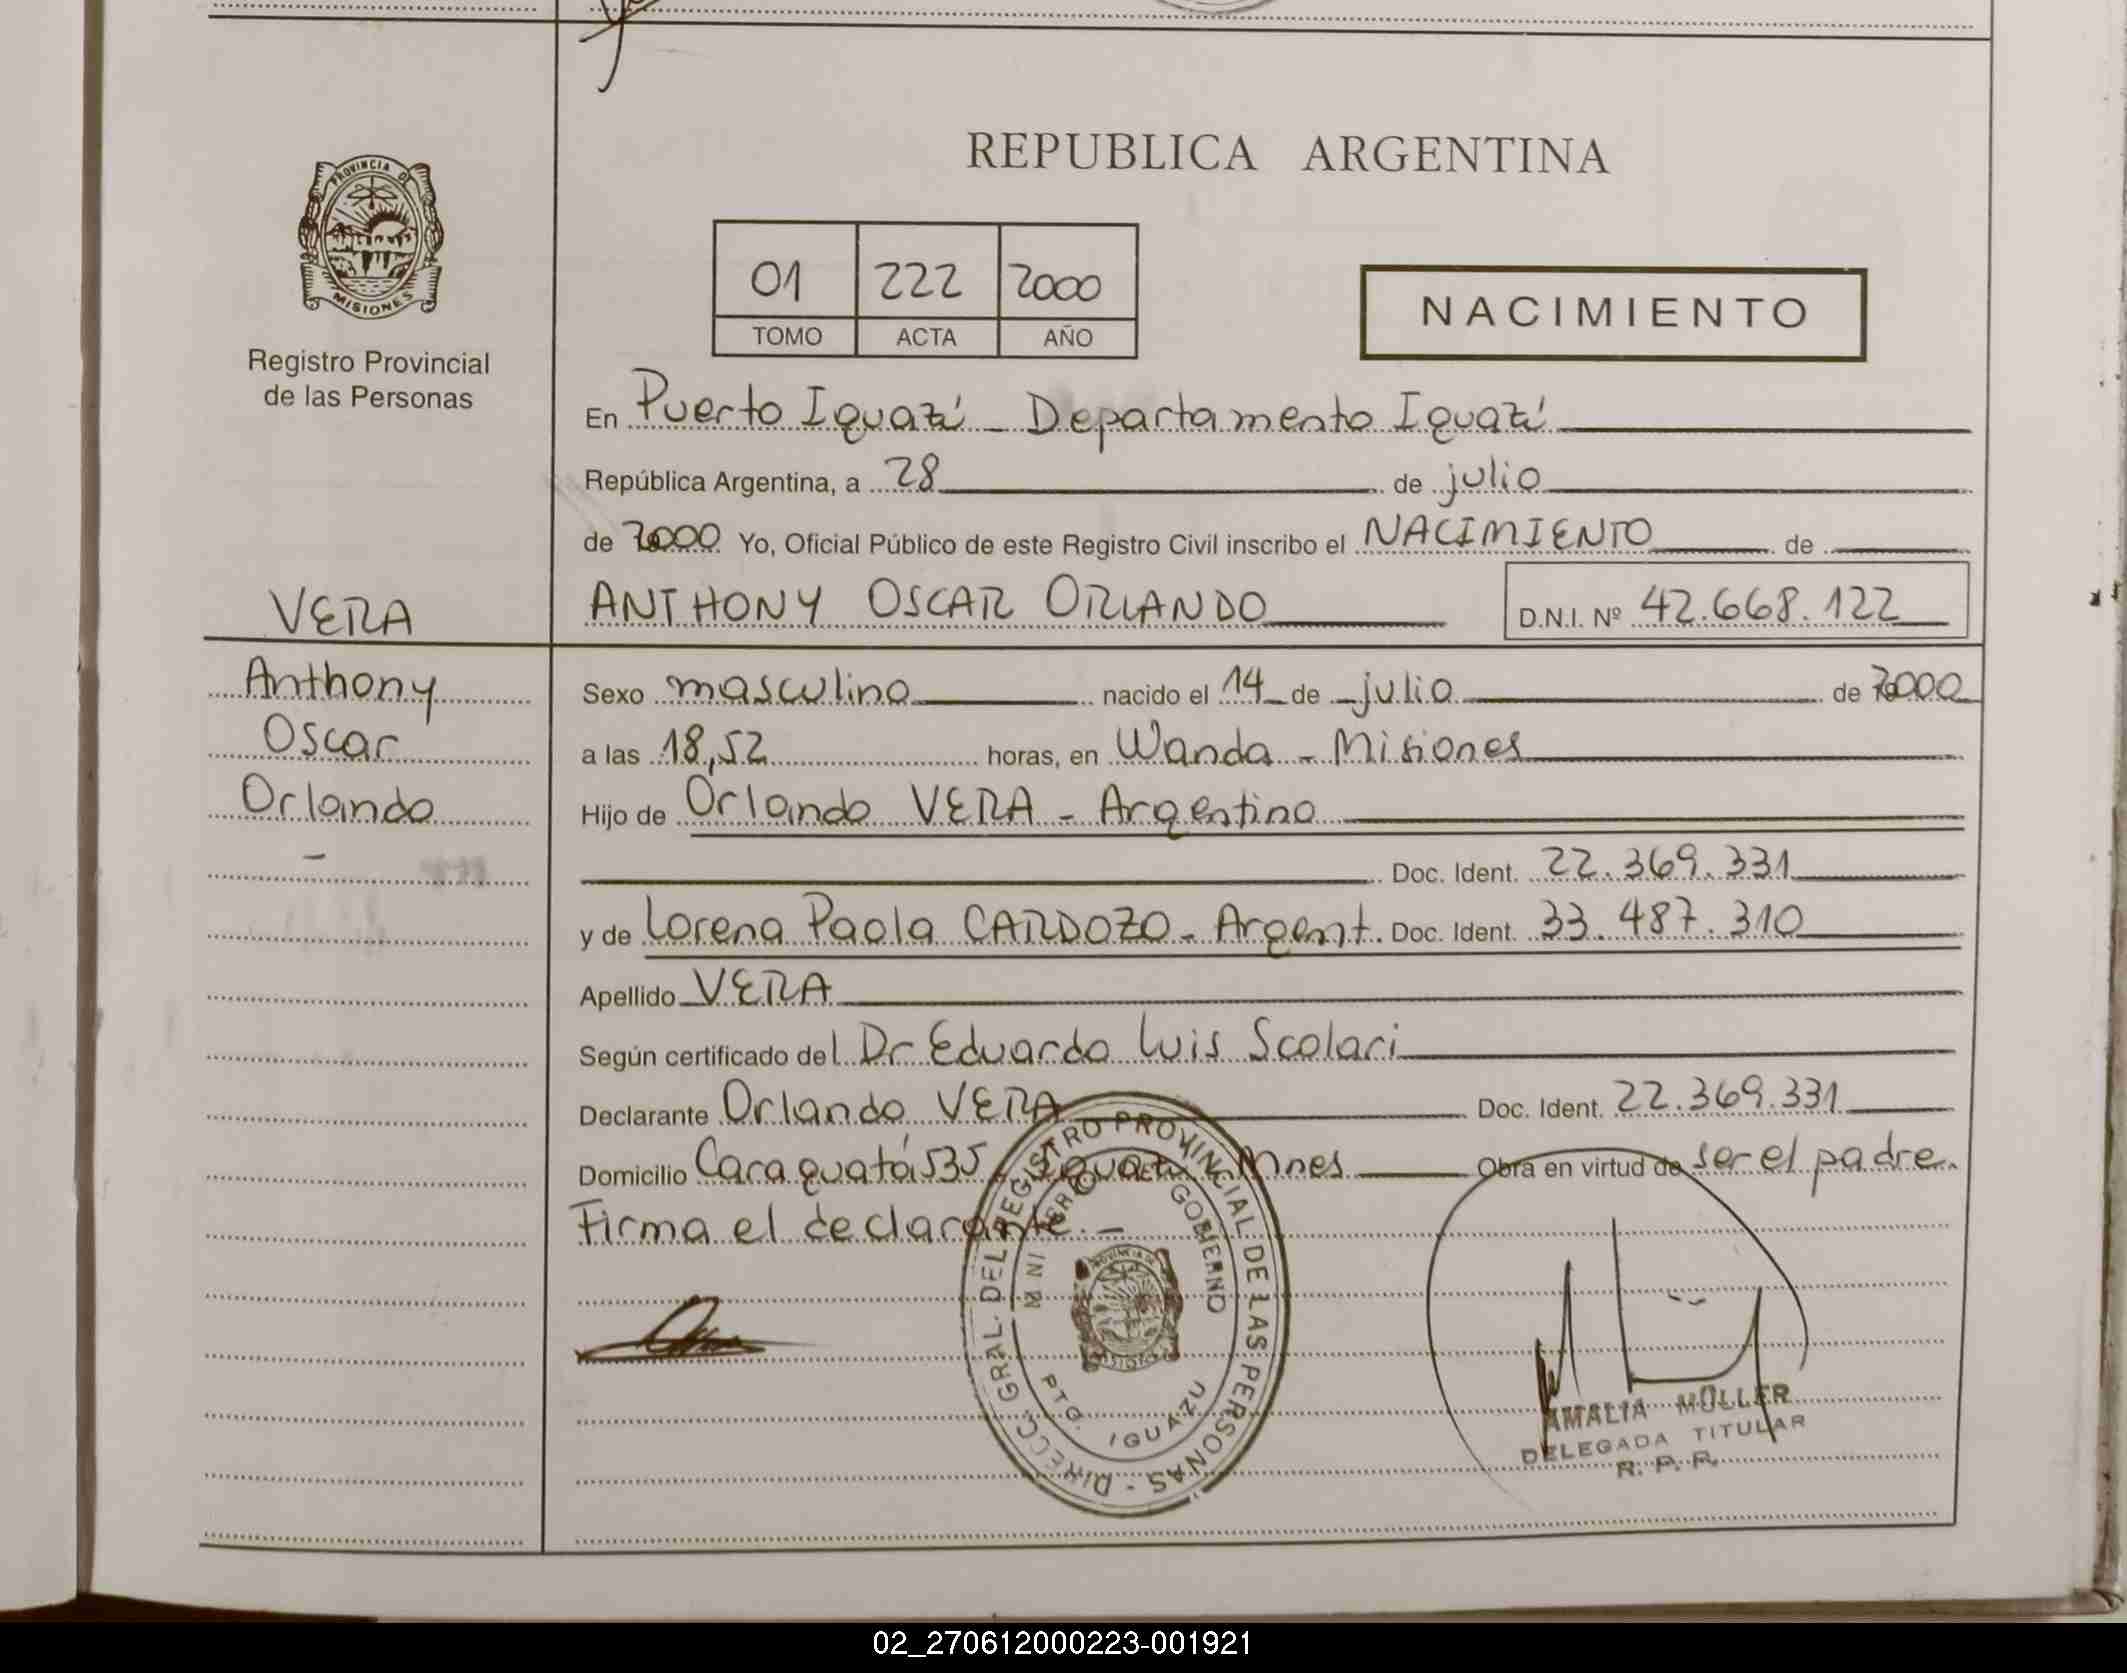 REPUBLICA ARGENTINA
PROVINCIA DE
MISIONES
Registro Provincial
de las Personas
01 222 2000
TOMO ACTA AÑO
NACIMIENTO
En Puerto Iguazú - Departamento Iguazú
República Argentina, a 28 de julio
de 2000 Yo, Oficial Público de este Registro Civil inscribo el NACIMIENTO de
VERA
ANTHONY OSCAR ORLANDO D.N.I. Nº 42.668.122
Anthony
Oscar
Orlando
-
Sexo masculino nacido el 14 de julio de 2000
a las 18,52 horas, en Wanda - Misiones
Hijo de Orlando VERA - Argentino
Doc. Ident. 22.369.331
y de Lorena Paola CARDOZO - Argent. Doc. Ident. 33.487.310
Apellido VERA
Según certificado del Dr Eduardo Luis Scolari
Declarante Orlando VERA Doc. Ident. 22.369.331
Domicilio Caraguatá 535 - Iguazú Mnes Obra en virtud de ser el padre.
Firma el declarante.-
DIRECC. GRAL. DEL REGISTRO PROVINCIAL DE LAS PERSONAS -
GOBIERNO
PTO. IGUAZU
AMALIA MULLER
DELEGADA TITULAR
R. P. P.
02_270612000223-001921